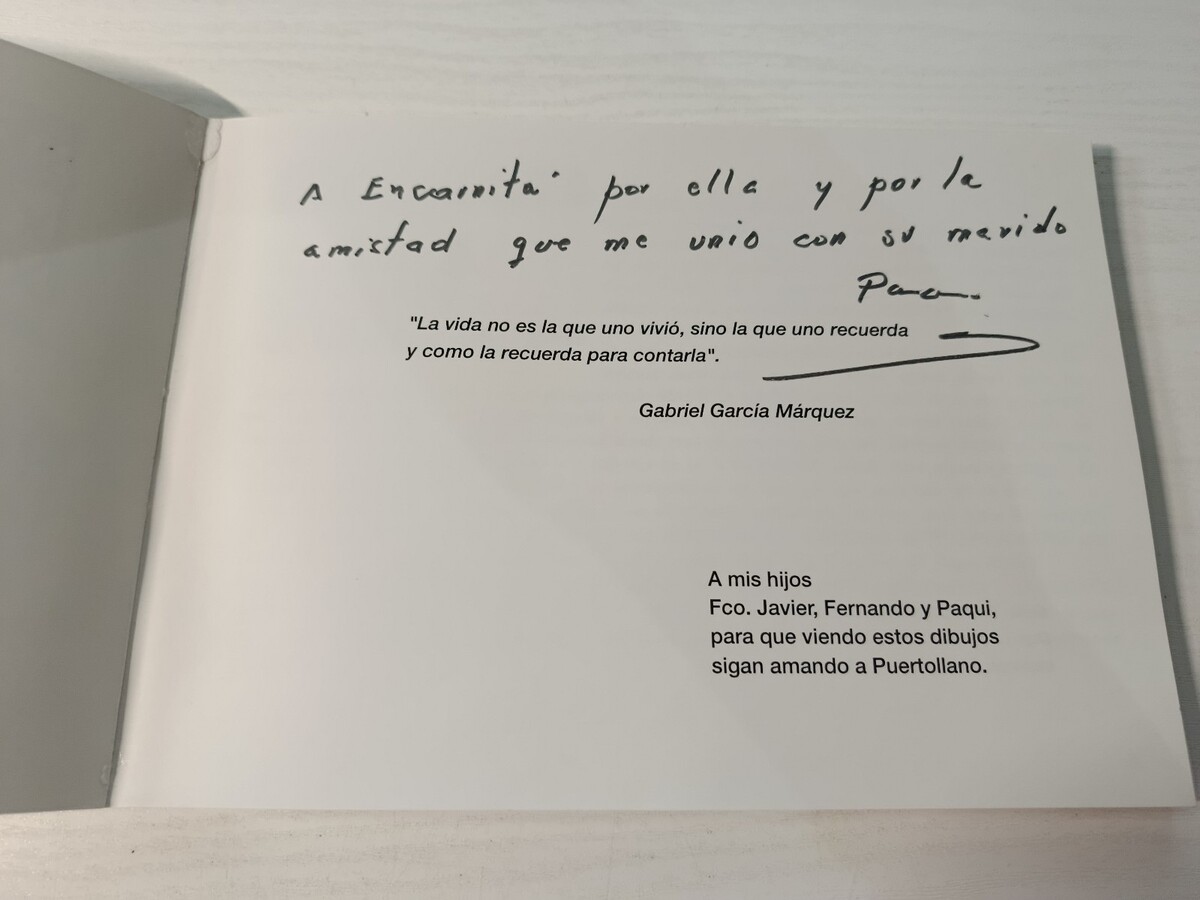 A Encarnita por ella y por la
amistad que me unio con su marido
"La vida no es la que uno vivió, sino la que uno recuerda
y como la recuerda para contarla".
Gabriel García Márquez
A mis hijos
Fco. Javier, Fernando y Paqui,
para que viendo estos dibujos
sigan amando a Puertollano.